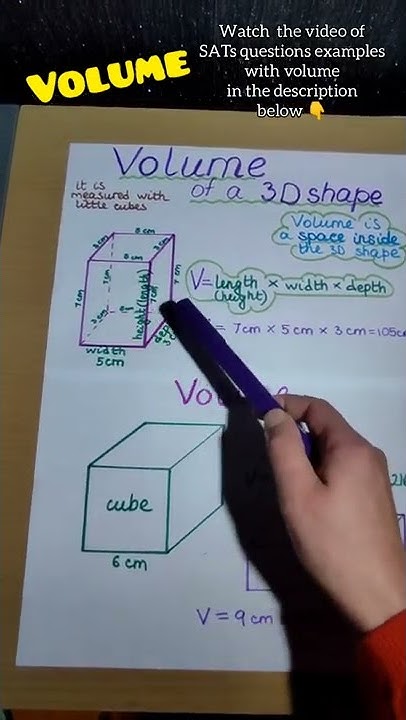 VOLUME
Watch the video of
SATs questions examples
with volume
in the description
below 👇
Volume
of a 3D shape
it is
measured with
little cubes
Volume is
a space inside
the 3D shape
V= length × width × depth
(height)
= 7cm × 5 cm × 3 cm = 105cm
7cm
7cm
7cm
height (length)
width
5cm
Vo
cube
6 cm
V = 9 cm